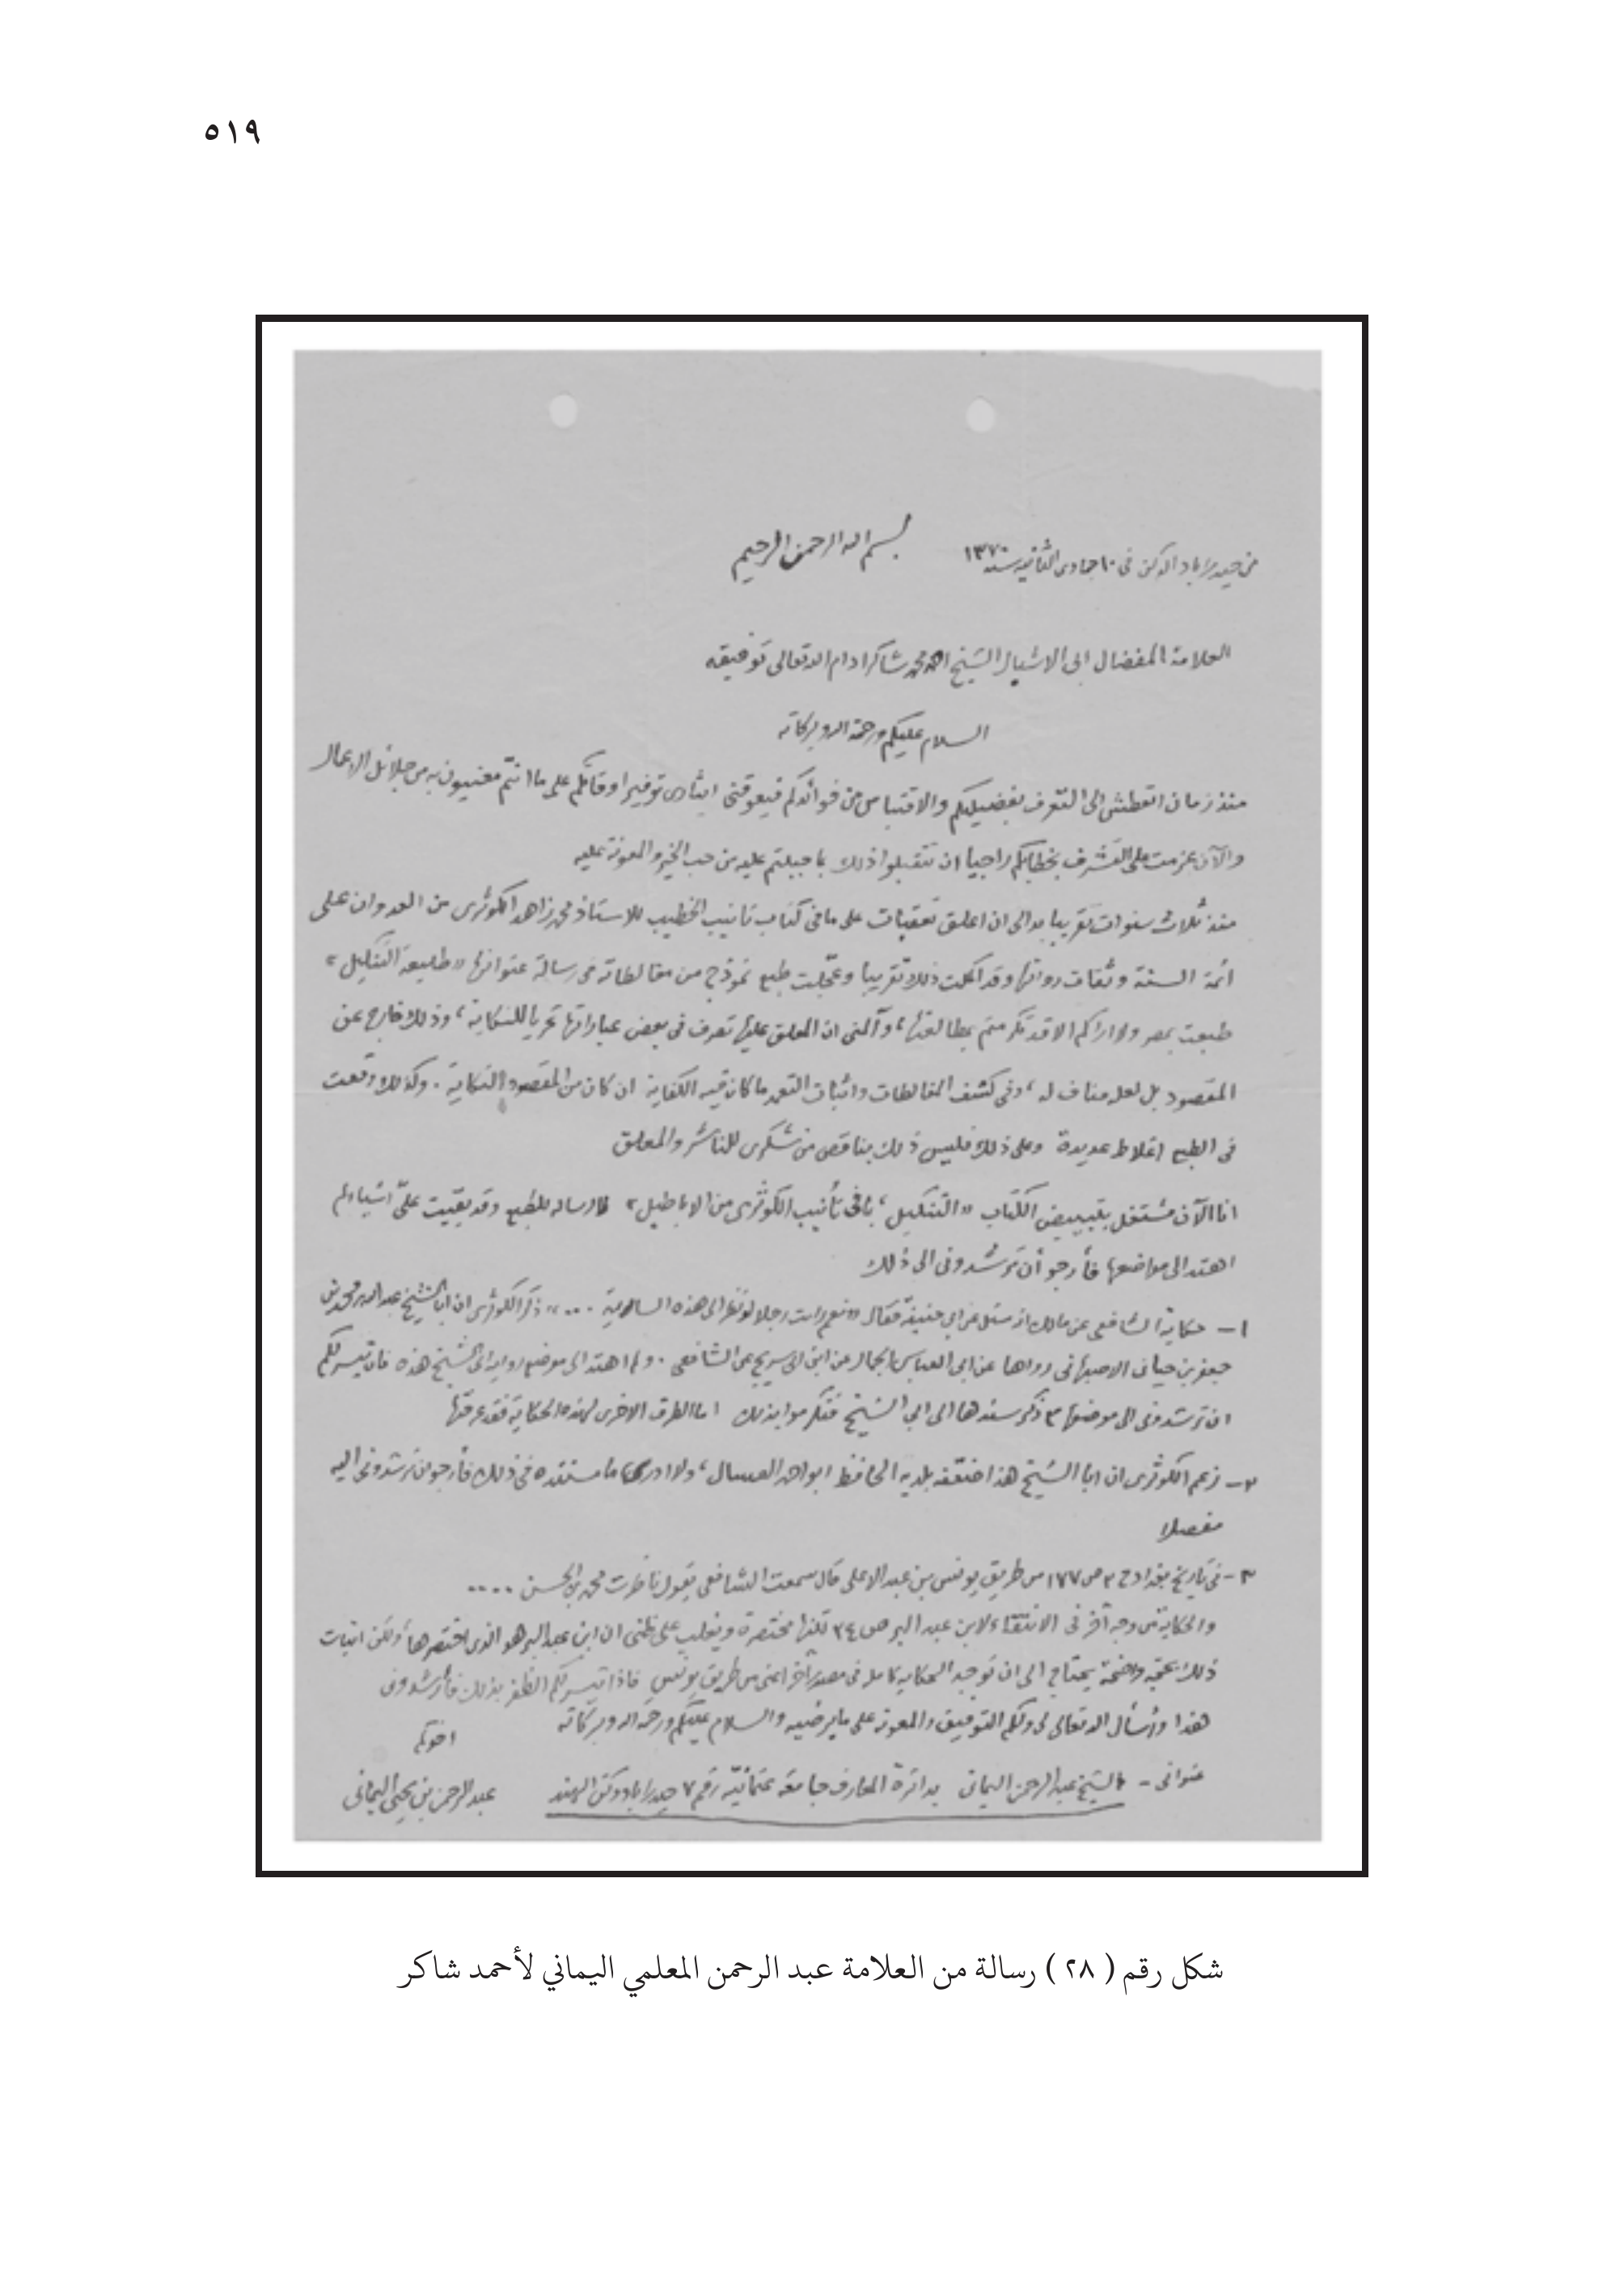 ٥١٩
من حيدراباد الدكن في ١٠ جمادى الثانية سنة ١٣٧٠
بسم الله الرحمن الرحيم
العلامة المفضال ابى الاشبال الشيخ احمد محمد شاكر ادام الله تعالى توفيقه
السلام عليكم ورحمة الله وبركاته
منذ زمان اتعطش الى التعرف بفضيلتكم والاقتباس من فوائدكم فيعوقنى ايثارى توفير اوقاتكم على ما انتم معنيون به من جلائل الاعمال
والآن عزمت على التشرف بخطابكم راجيا ان تتقبلوا ذلك بما جبلتم عليه من حب الخير والمعونة عليه
منذ ثلاث سنوات تقريبا بدا لى ان اعلق تعقبات على ما فى كتاب تانيب الخطيب للاستاذ محمد زاهد الكوثرى من العدوان على
ائمة السنة وثقات رواتها وقد اكملت ذلك تقريبا وعجلت طبع نموذج من مغالطاته فى رسالة عنوانها «طليعة التنكيل»
طبعت بمصر ولا اراكم الا قد تكرمتم بمطالعتها، وآلمنى ان المعلق عليها تصرف فى بعض عباراتها تحريا للنكاية، وذلك خارج عن
المقصود بل لعله مناف له، وفى كشف المغالطات واثبات التعمد ما كان فيه الكفاية ان كان من المقصود النكاية. وكذلك وقعت
فى الطبع اغلاط عديدة وعلى ذلك فليس ذلك بناقص من شكرى للناشر والمعلق
انا الآن مشتغل بتبييض الكتاب «التنكيل، بما فى تأنيب الكوثرى من الاباطيل» لارساله للطبع وقد بقيت علىّ اشياء لم
اهتد الى مواضعها فأرجو أن ترشدونى الى ذلك
١- حكاية الشافعى عن مالك انه سئل عن ابى حنيفة فقال «نعم رايت رجلا لو نظر الى هذه السارية ....» ذكر الكوثرى ان ابا الشيخ عبد الله بن محمد بن
جعفر بن حيان الاصبهانى رواها عن ابى العباس الجمال عن ابن ابى سريج عن الشافعى. ولم اهتد الى موضع رواية ابى الشيخ هذه فان تيسر لكم
ان ترشدونى الى موضعها مع ذكر سندها الى ابى الشيخ فتكرموا بذلك اما الطرق الاخرى لهذه الحكاية فقد عرفتها
٢- زعم الكوثرى ان ابا الشيخ هذا ضعّفه بلديه الحافظ ابو احمد العسال، ولا ادرى ما مستنده فى ذلك فأرجو ان ترشدونى اليه
مفصلا
٣- فى تاريخ بغداد ج ٢ ص ١٧٧ من طريق يونس بن عبد الاعلى قال سمعت الشافعى يقول ناظرت محمد بن الحسن ....
والحكاية من وجه آخر فى الانتقاء لابن عبد البر ص ٢٤ لكنها مختصرة ويغلب على ظنى ان ابن عبد البر هو الذى اختصرها، ولكن اثبات
ذلك بحجة واضحة يحتاج الى ان توجد الحكاية كاملة فى مصدر آخر اعنى من طريق يونس فاذا تيسر لكم الظفر بذلك فأرشدونى
هذا وأسأل الله تعالى لى ولكم التوفيق والمعونة على ما يرضيه والسلام عليكم ورحمة الله وبركاته
اخوكم
عنوانى - الشيخ عبد الرحمن اليمانى بدائرة المعارف جامعه عثمانيّه رقم ٧ حيدراباد دكن الهند
عبد الرحمن بن يحيى اليمانى
شكل رقم ( ٢٨ ) رسالة من العلامة عبد الرحمن المعلمي اليماني لأحمد شاكر